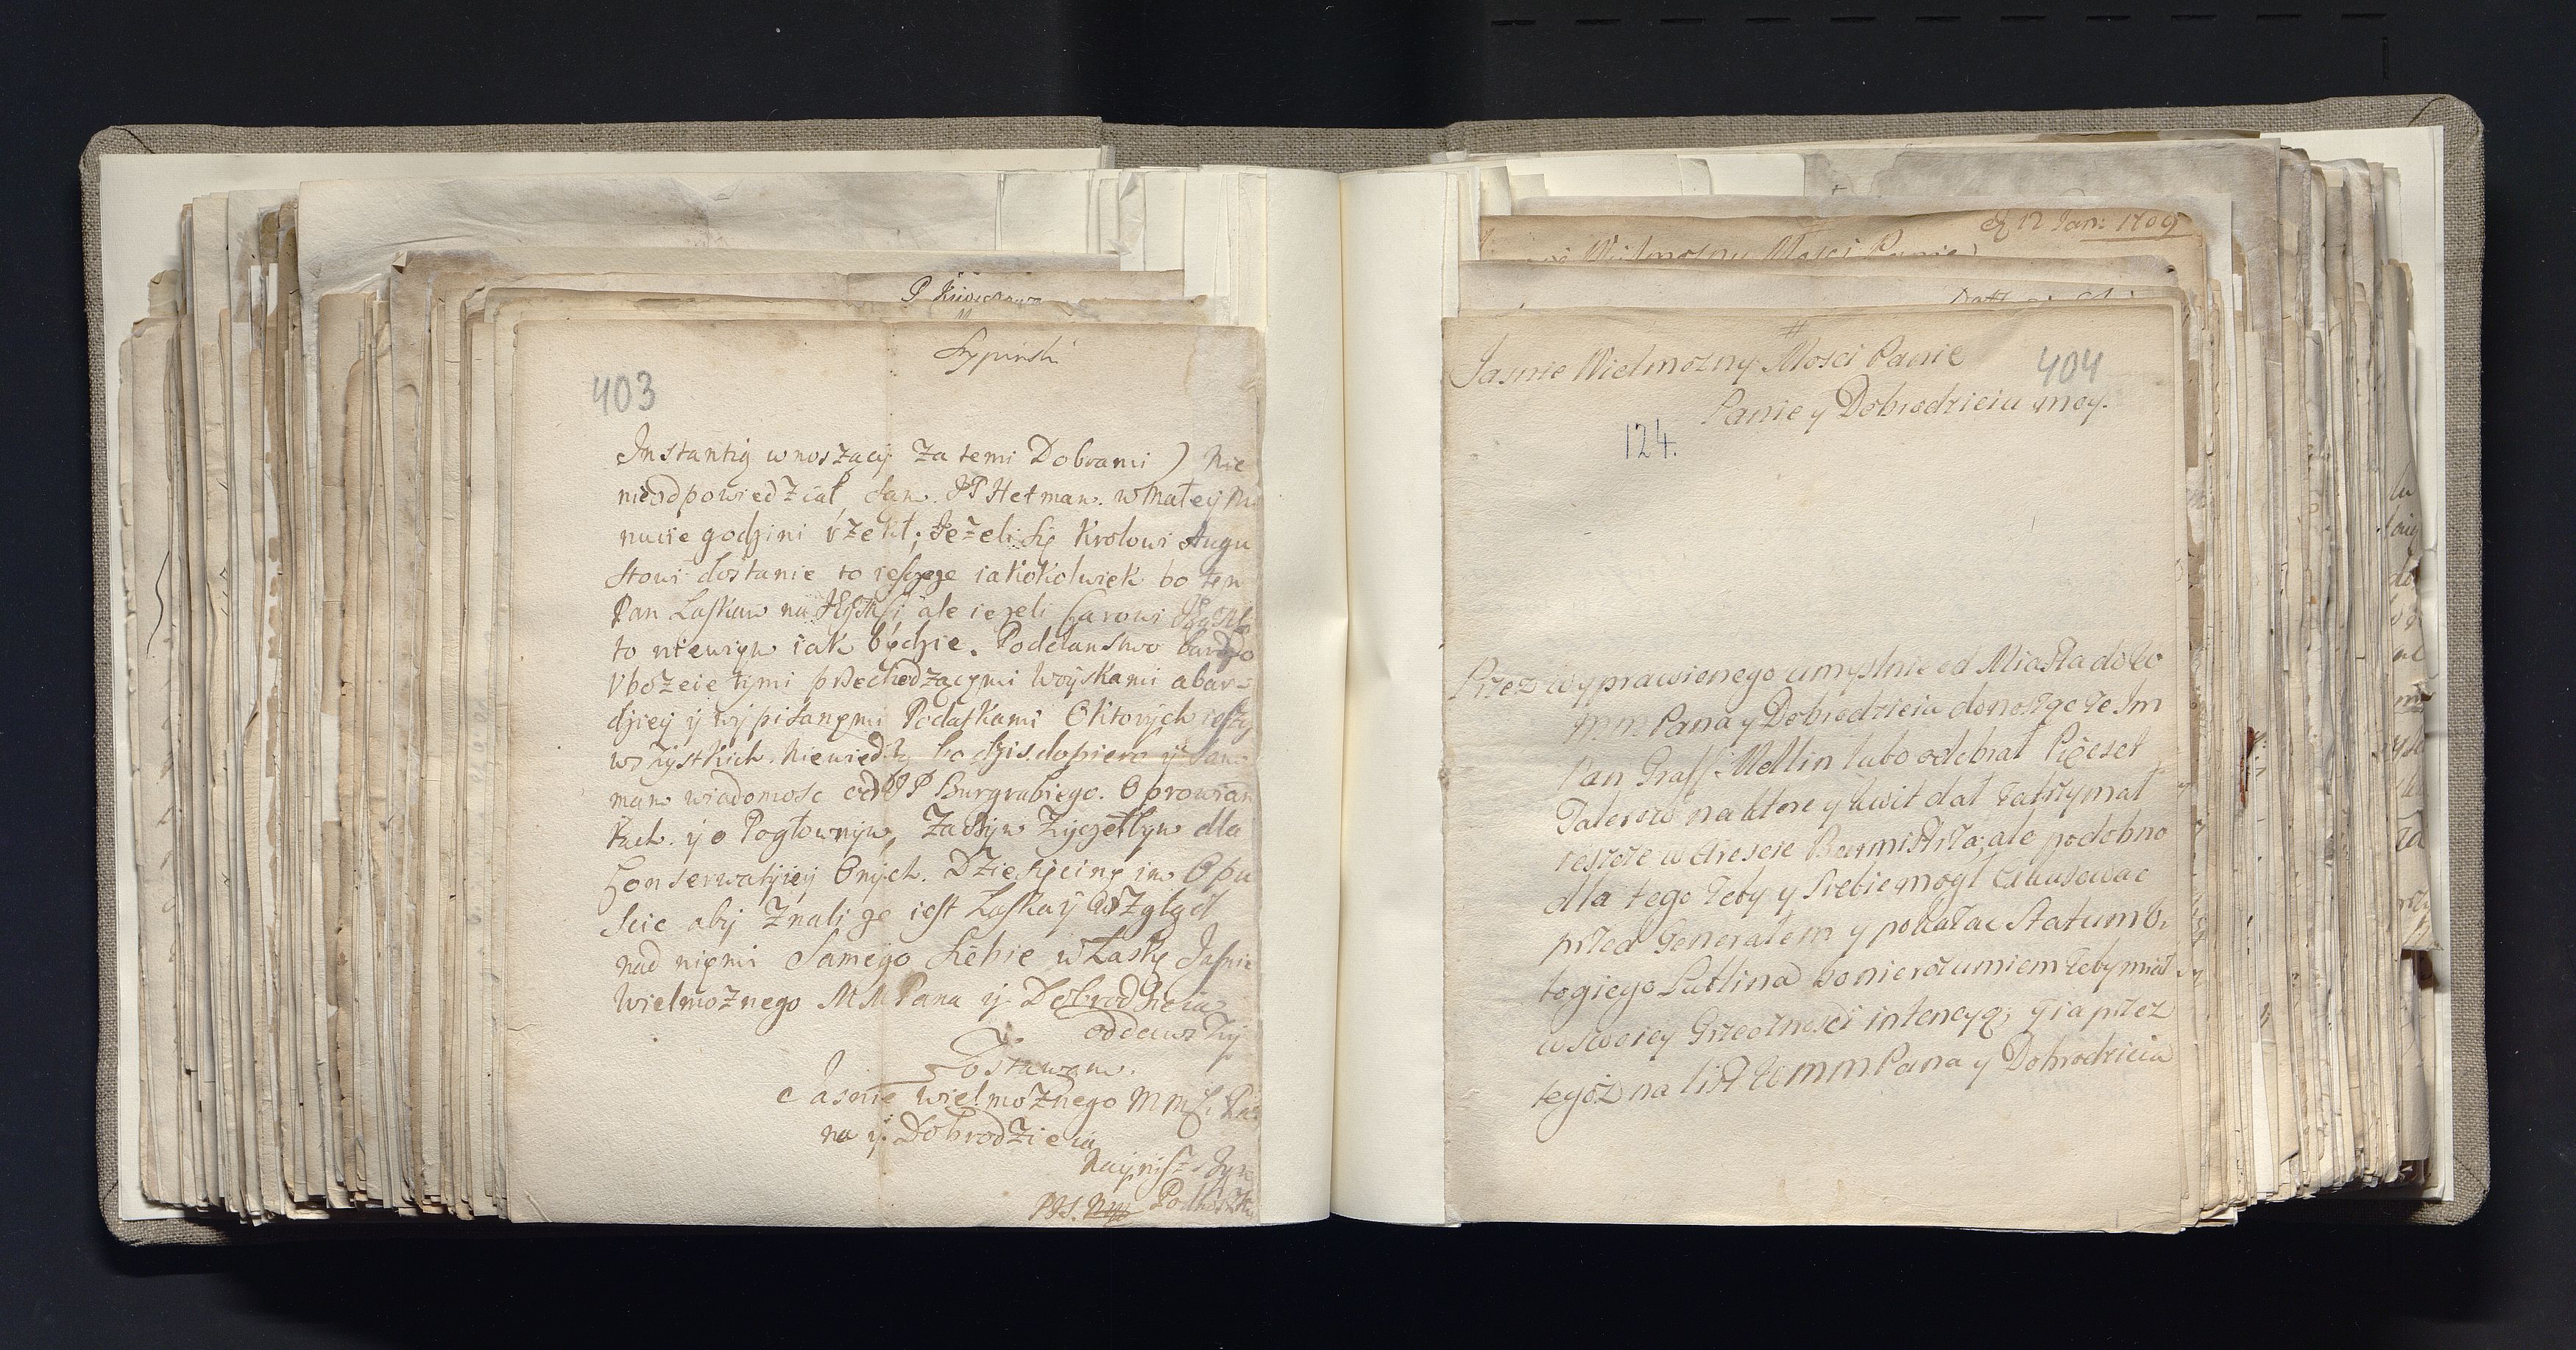 P
Szypinski
403
Instantią wnoszący za temi Dobrami) nic
nieodpowiedział sam. JP Hetman. w Małey Mi
nucie godzini rzekł; Jeżeli się Krolowi Augu
stowi dostanie to ieszcze iakokolwiek bo ten
Pan Laskaw na ale ieżeli Carowi
to niewiem iak będzie. Poddanstwo bardzo
Vbożeie tymi przechodzącymi Woyskami a bar
dziey y wypisanymi Podatkami Oktorych ieszcze
wszystkich. Niewiedzą bo dzis dopiero y sam
mam wiadomosc od JP Burgrabiego. O prowian
tach. y o Pogłownym, Zaczym Zyczełbym dla
Conserwatyiey Onych. Dziesięciny im Opu
scic aby Znali ze iest Laska y wzgląd
nad niemi Samego Siebie w Łaskę Jasnie
Wielmożnego M M Pana y Dobrodzieia
oddawszy
Zostawam.
Jasnie wielmożnego M M Pa
na y Dobrodzieia
Nayniszszym
Podnoszkiem
PS.
12 Jan: 1709
Wielmożny Mosci Panie
Jasnie Wielmożny Mosci Panie
404
Panie y Dobrodzieiu moy.
124.
Przez wyprawionego umyslnie od Miasta do Co
mm Pana y Dobrodzieia donoszę że Im
Pan Graff Mellin lubo odebrał Pięcset
Talerow na ktore y kwit dał zatrzymał
ieszcze w Areście Burmistrza, ale podobno
dla tego żeby y siebie mogł exkusować
przed Generałem y pokazac statum
togiego Lublina bo nierozumiem żeby miał
w swoiey Grzeczności intencyą, y ia przez
tegoż na list mm Pana y Dobrodzieia